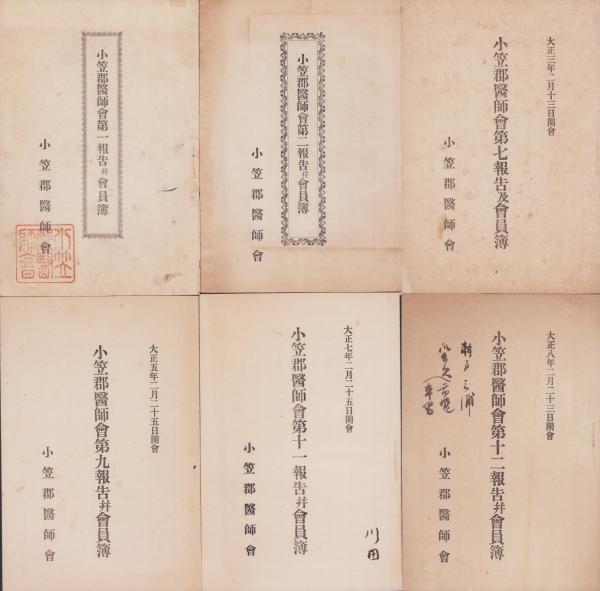 小笠郡醫師會第一報告幷會員簿
小笠郡醫師會
小笠郡醫師會
小笠郡醫師會第二報告幷會員簿
小笠郡醫師會
大正三年二月十三日開會
小笠郡醫師會第七報告及會員簿
小笠郡醫師會
大正五年二月二十五日開會
小笠郡醫師會第九報告幷會員簿
小笠郡醫師會
大正七年二月二十五日開會
小笠郡醫師會第十一報告幷會員簿
小笠郡醫師會
川田
大正八年二月二十三日開會
小笠郡醫師會第十二報告幷會員簿
小笠郡醫師會